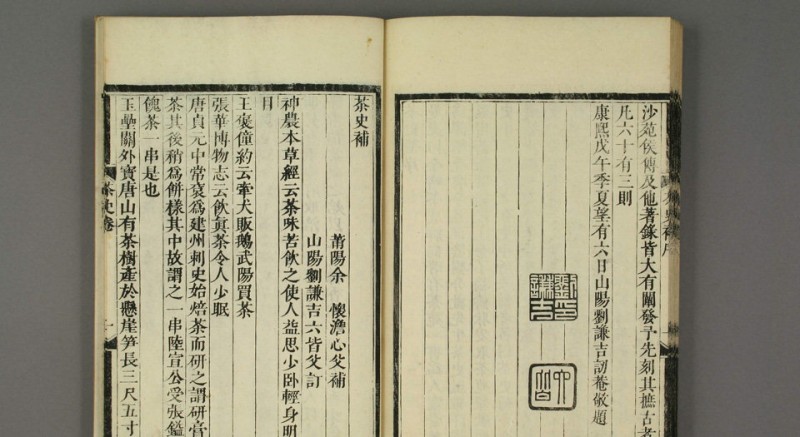 沙苑侯傳及他著錄皆大有闡發予先刻其摭古者
凡六十有三則
康熙戊午季夏望有六日山陽劉謙吉訒菴敬題
劉印謙吉
六皆
茶史補
莆陽余 懷澹心父補
山陽劉謙吉六皆父訂
神農本草經云茶味苦飲之使人益思少臥輕身明
目
王褒僮約云牽犬販鵝武陽買茶
張華博物志云飲眞茶令人少眠
唐貞元中常衮爲建州刺史始焙茶而研之謂研膏
茶其後稍爲餅樣其中故謂之一串陸宣公受張鎰
餽茶一串是也
玉壘關外寶唐山有茶樹產於懸崖笋長三尺五寸
茶史卷
一